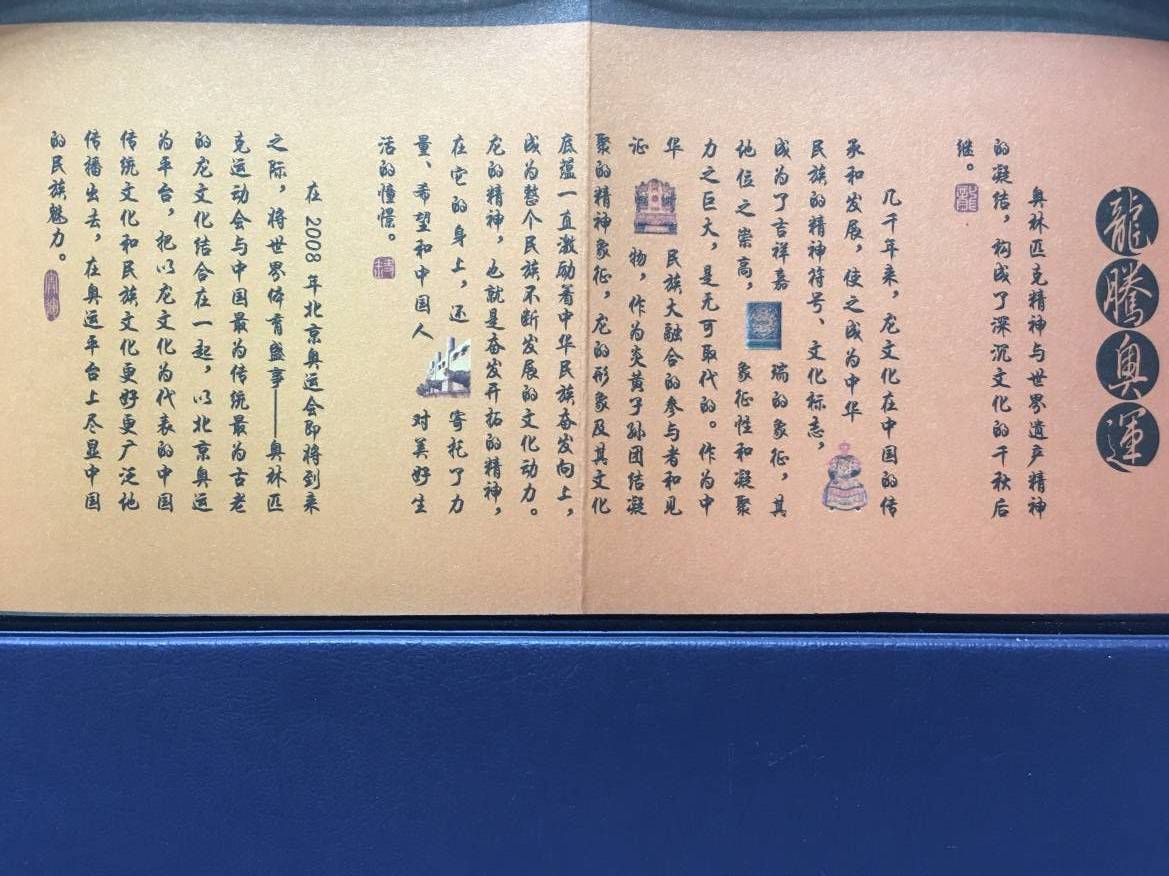 龍騰奥運
奥林匹克精神与世界遗产精神
的凝结，构成了深沉文化的千秋后
继。
龍
几千年来，龙文化在中国的传
承和发展，使之成为中华
民族的精神符号、文化标志，
成为了吉祥嘉瑞的象征，其
地位之崇高，象征性和凝聚
力之巨大，是无可取代的。作为中
华民族大融合的参与者和见
证物，作为炎黄子孙团结凝
聚的精神象征，龙的形象及其文化
底蕴一直激励着中华民族奋发向上，
成为整个民族不断发展的文化动力。
龙的精神，也就是奋发开拓的精神，
在它的身上，还寄托了力
量、希望和中国人对美好生
活的憧憬。
在2008年北京奥运会即将到来
之际，将世界体育盛事——奥林匹
克运动会与中国最为传统最为古老
的龙文化结合在一起，以北京奥运
为平台，把以龙文化为代表的中国
传统文化和民族文化更好更广泛地
传播出去，在奥运平台上尽显中国
的民族魅力。